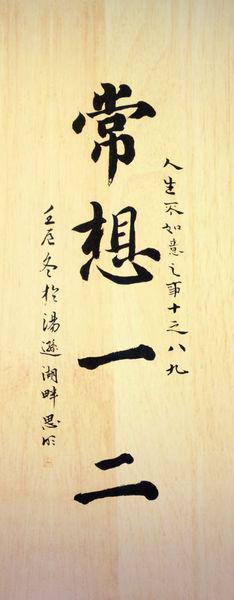 人生不如意之事十之八九
常想一二
壬辰冬於湯遜湖畔思明